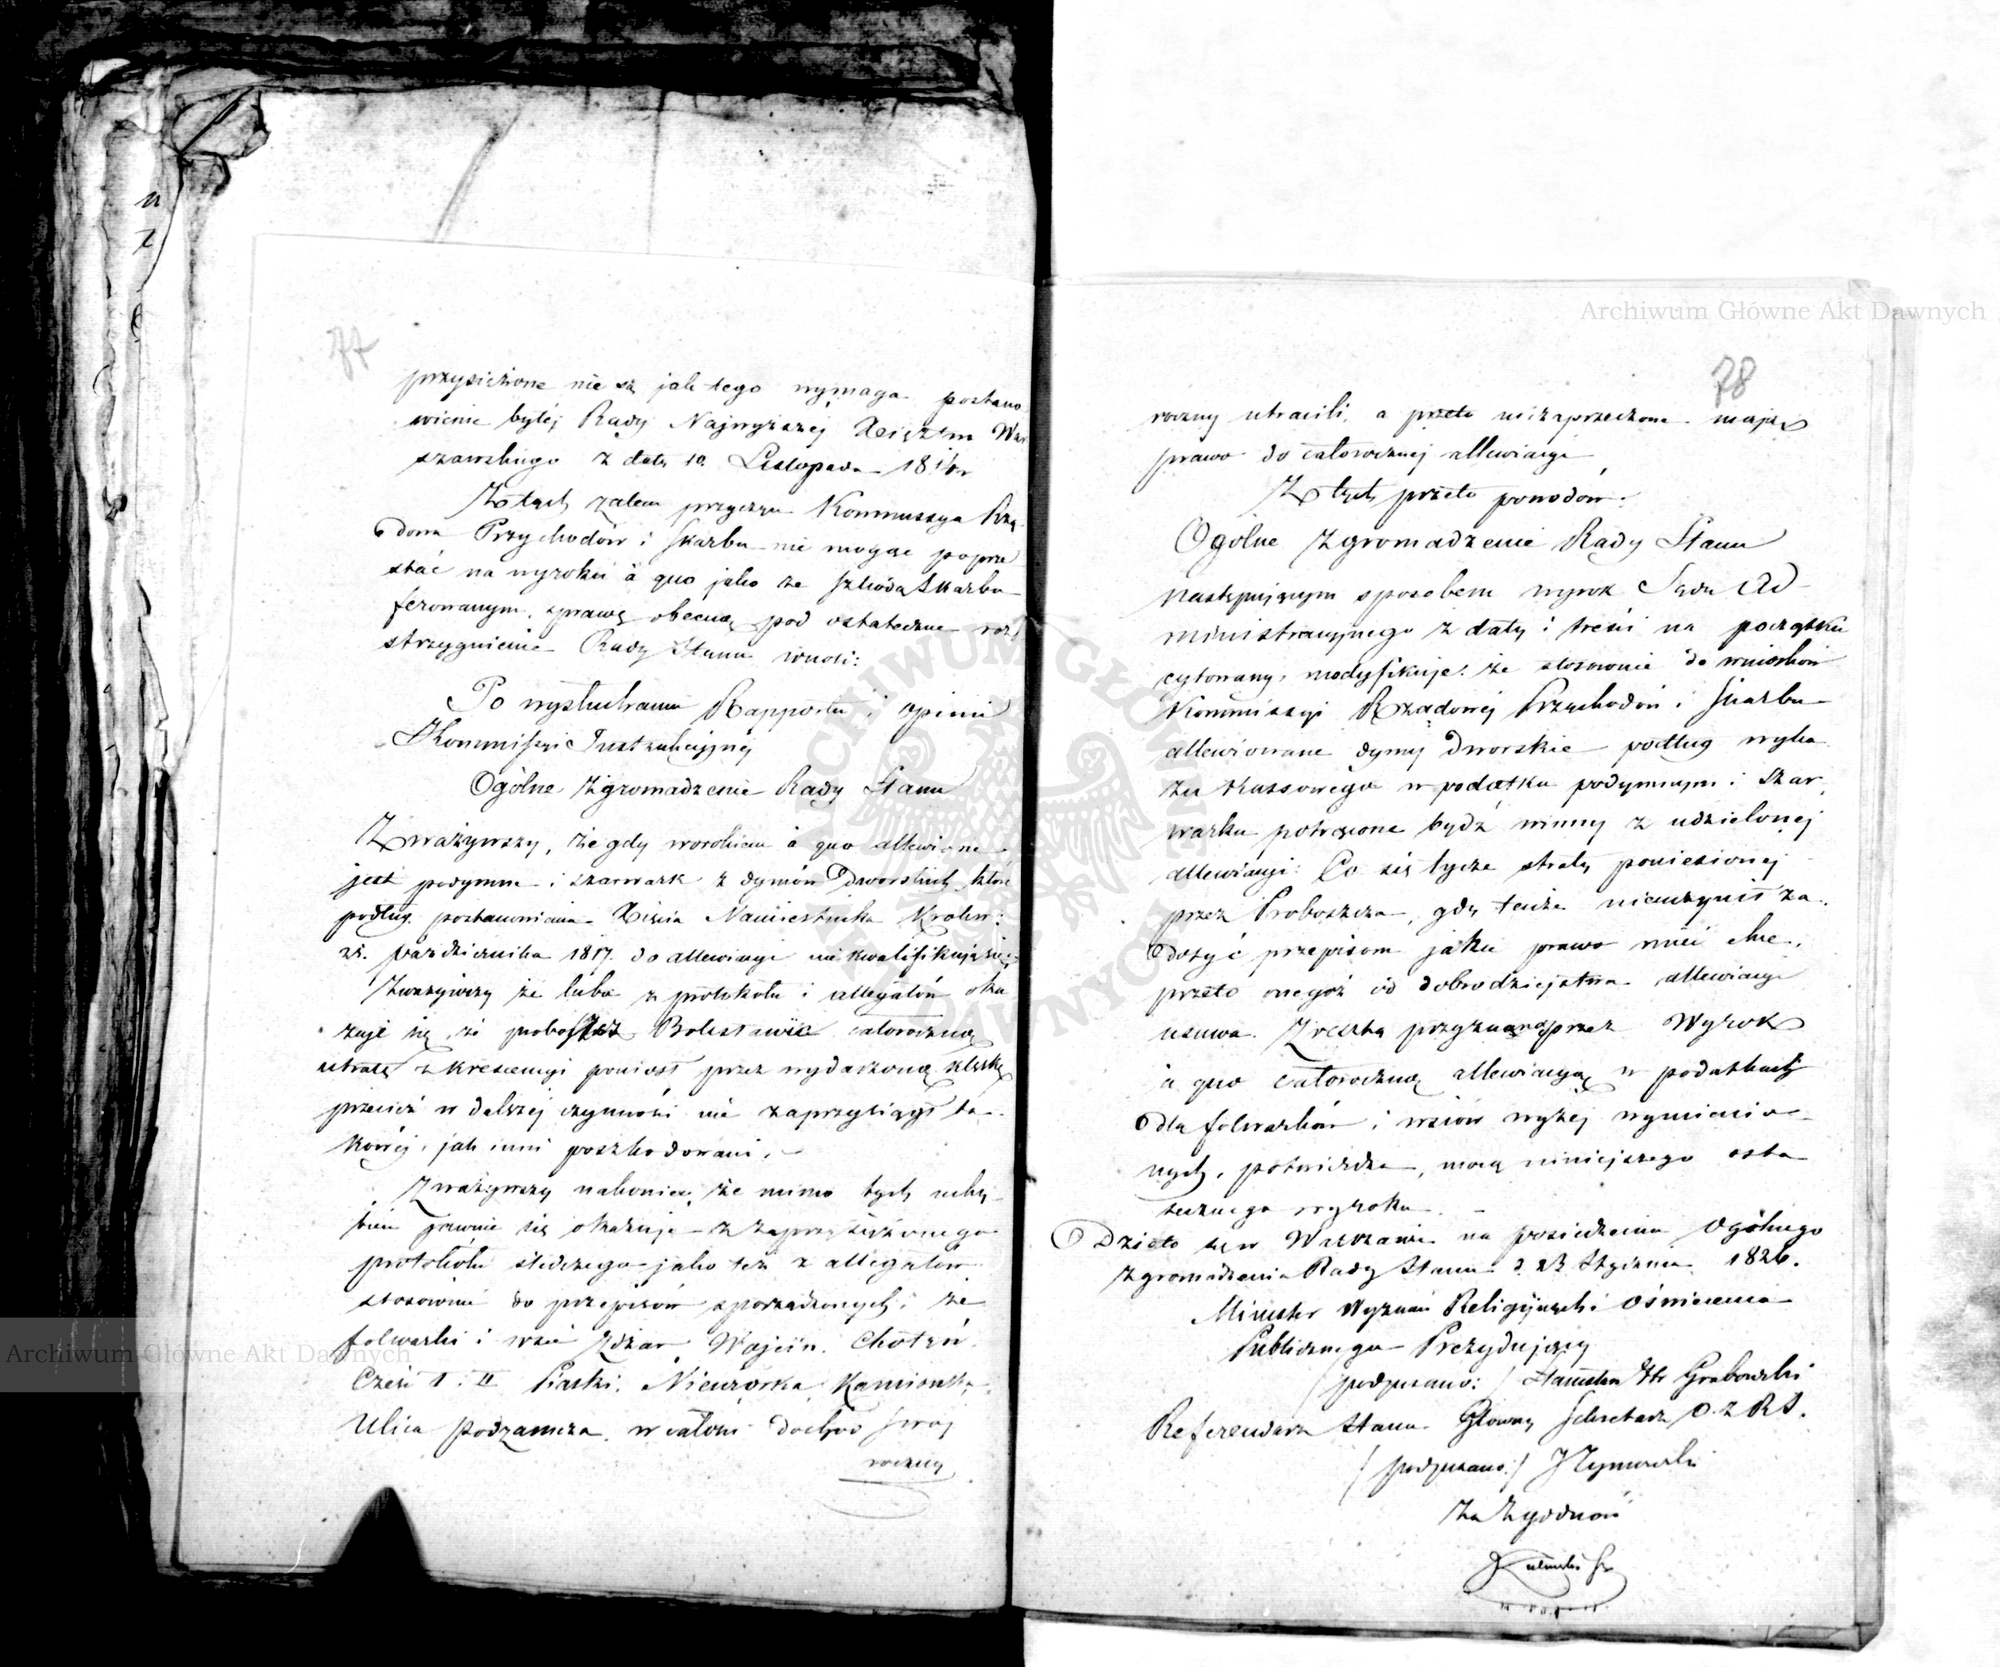 77
przysiężone nie są jak tego wymaga postano
wienie byłej Rady Najwyższej Xięztwa War
szawskiego z daty 10 Listopada 1814 r
Z tych zatem przyczyn Kommissya Rzą
dowa Przychodów i Skarbu nie mogąc poprze
stać na wyroku à quo jako ze szkodą Skarbu
ferowanym, sprawę obecną pod ostateczne roz
strzygnienie Rady Stanu wnosi:
Po wysłuchaniu Rapportu i opinii
Kommissyi Instrukcyjnej
Ogólne Zgromadzenie Rady Stanu
Zważywszy, że gdy wyrokiem à quo allewione
jest podymne i szarwark z dymów Dworskich, które
podług postanowienia Xięcia Namiestnika Królew:
21. Października 1817. do allewiacyi nie kwalifikują się;
Zważywszy że lubo z protokołu i allegatów oka
zuje się, że proboszcz Bolesławic całoroczną
utratę z krescencyi poniósł przez wydarzoną klęskę
przecież w dalszej czynności nie zaprzysiągł ta-
kowej, jak inni poszkodowani. -
Zważywszy nakoniec, że mimo tych uchy
bień jawnie się okazuje z zaprzysiężonego
protokółu śledczego jako też z allegatów
stosownie do przepisów sporządzonych; że
folwarki i wsie Zdżar, Wójcin, Chotyń
Część I. II Piaski, Mieczorka, Kamionka,
Ulica Podzamcze, w całości dochód swój
roczny
Archiwum Główne Akt Dawnych
78
roczny utracili, a przeto niezaprzeczone mają
prawo do całorocznej allewiacyi
Z tych przeto powodów:
Ogólne Zgromadzenie Rady Stanu
następującym sposobem wyrok Sądu Ad-
ministracyjnego z daty i treści na początku
cytowany, modyfikuje: że stosownie do wniosków
Kommissyi Rządowej Przychodów i Skarbu
allewiowane dymy Dworskie podług wyka
zu Kassowego w podatku podymnym i szar
warku potrącone bydź winny z udzielonej
allewiacyi: Co się tycze straty poniesionej
przez Proboszcza, gdy tenże nieuczynił za-
dosyć przepisom jakie prawo mieć chce,
przeto onegoż od dobrodziejstwa allewiacyi
usuwa. Zresztą przyznaną przez Wyrok
à quo całoroczną allewiacyą w podatkach
dla folwarków i wsiów wyżej wymienio-
nych, potwierdza, mocą niniejszego osta
tecznego wyroku. -
Działo się w Warszawie na posiedzeniu Ogólnego
Zgromadzenia Rady Stanu d. 23 Stycznia 1826.
Minister Wyznań Religijnych i Oświecenia
Publicznego Prezydujący
/ podpisano: / Stanisław Hr Grabowski
Referendarz Stanu Główny Sekretarz O. Z R S.
/ podpisano: / J Tymowski
Za Zgodność
Archiwum Główne Akt Dawnych